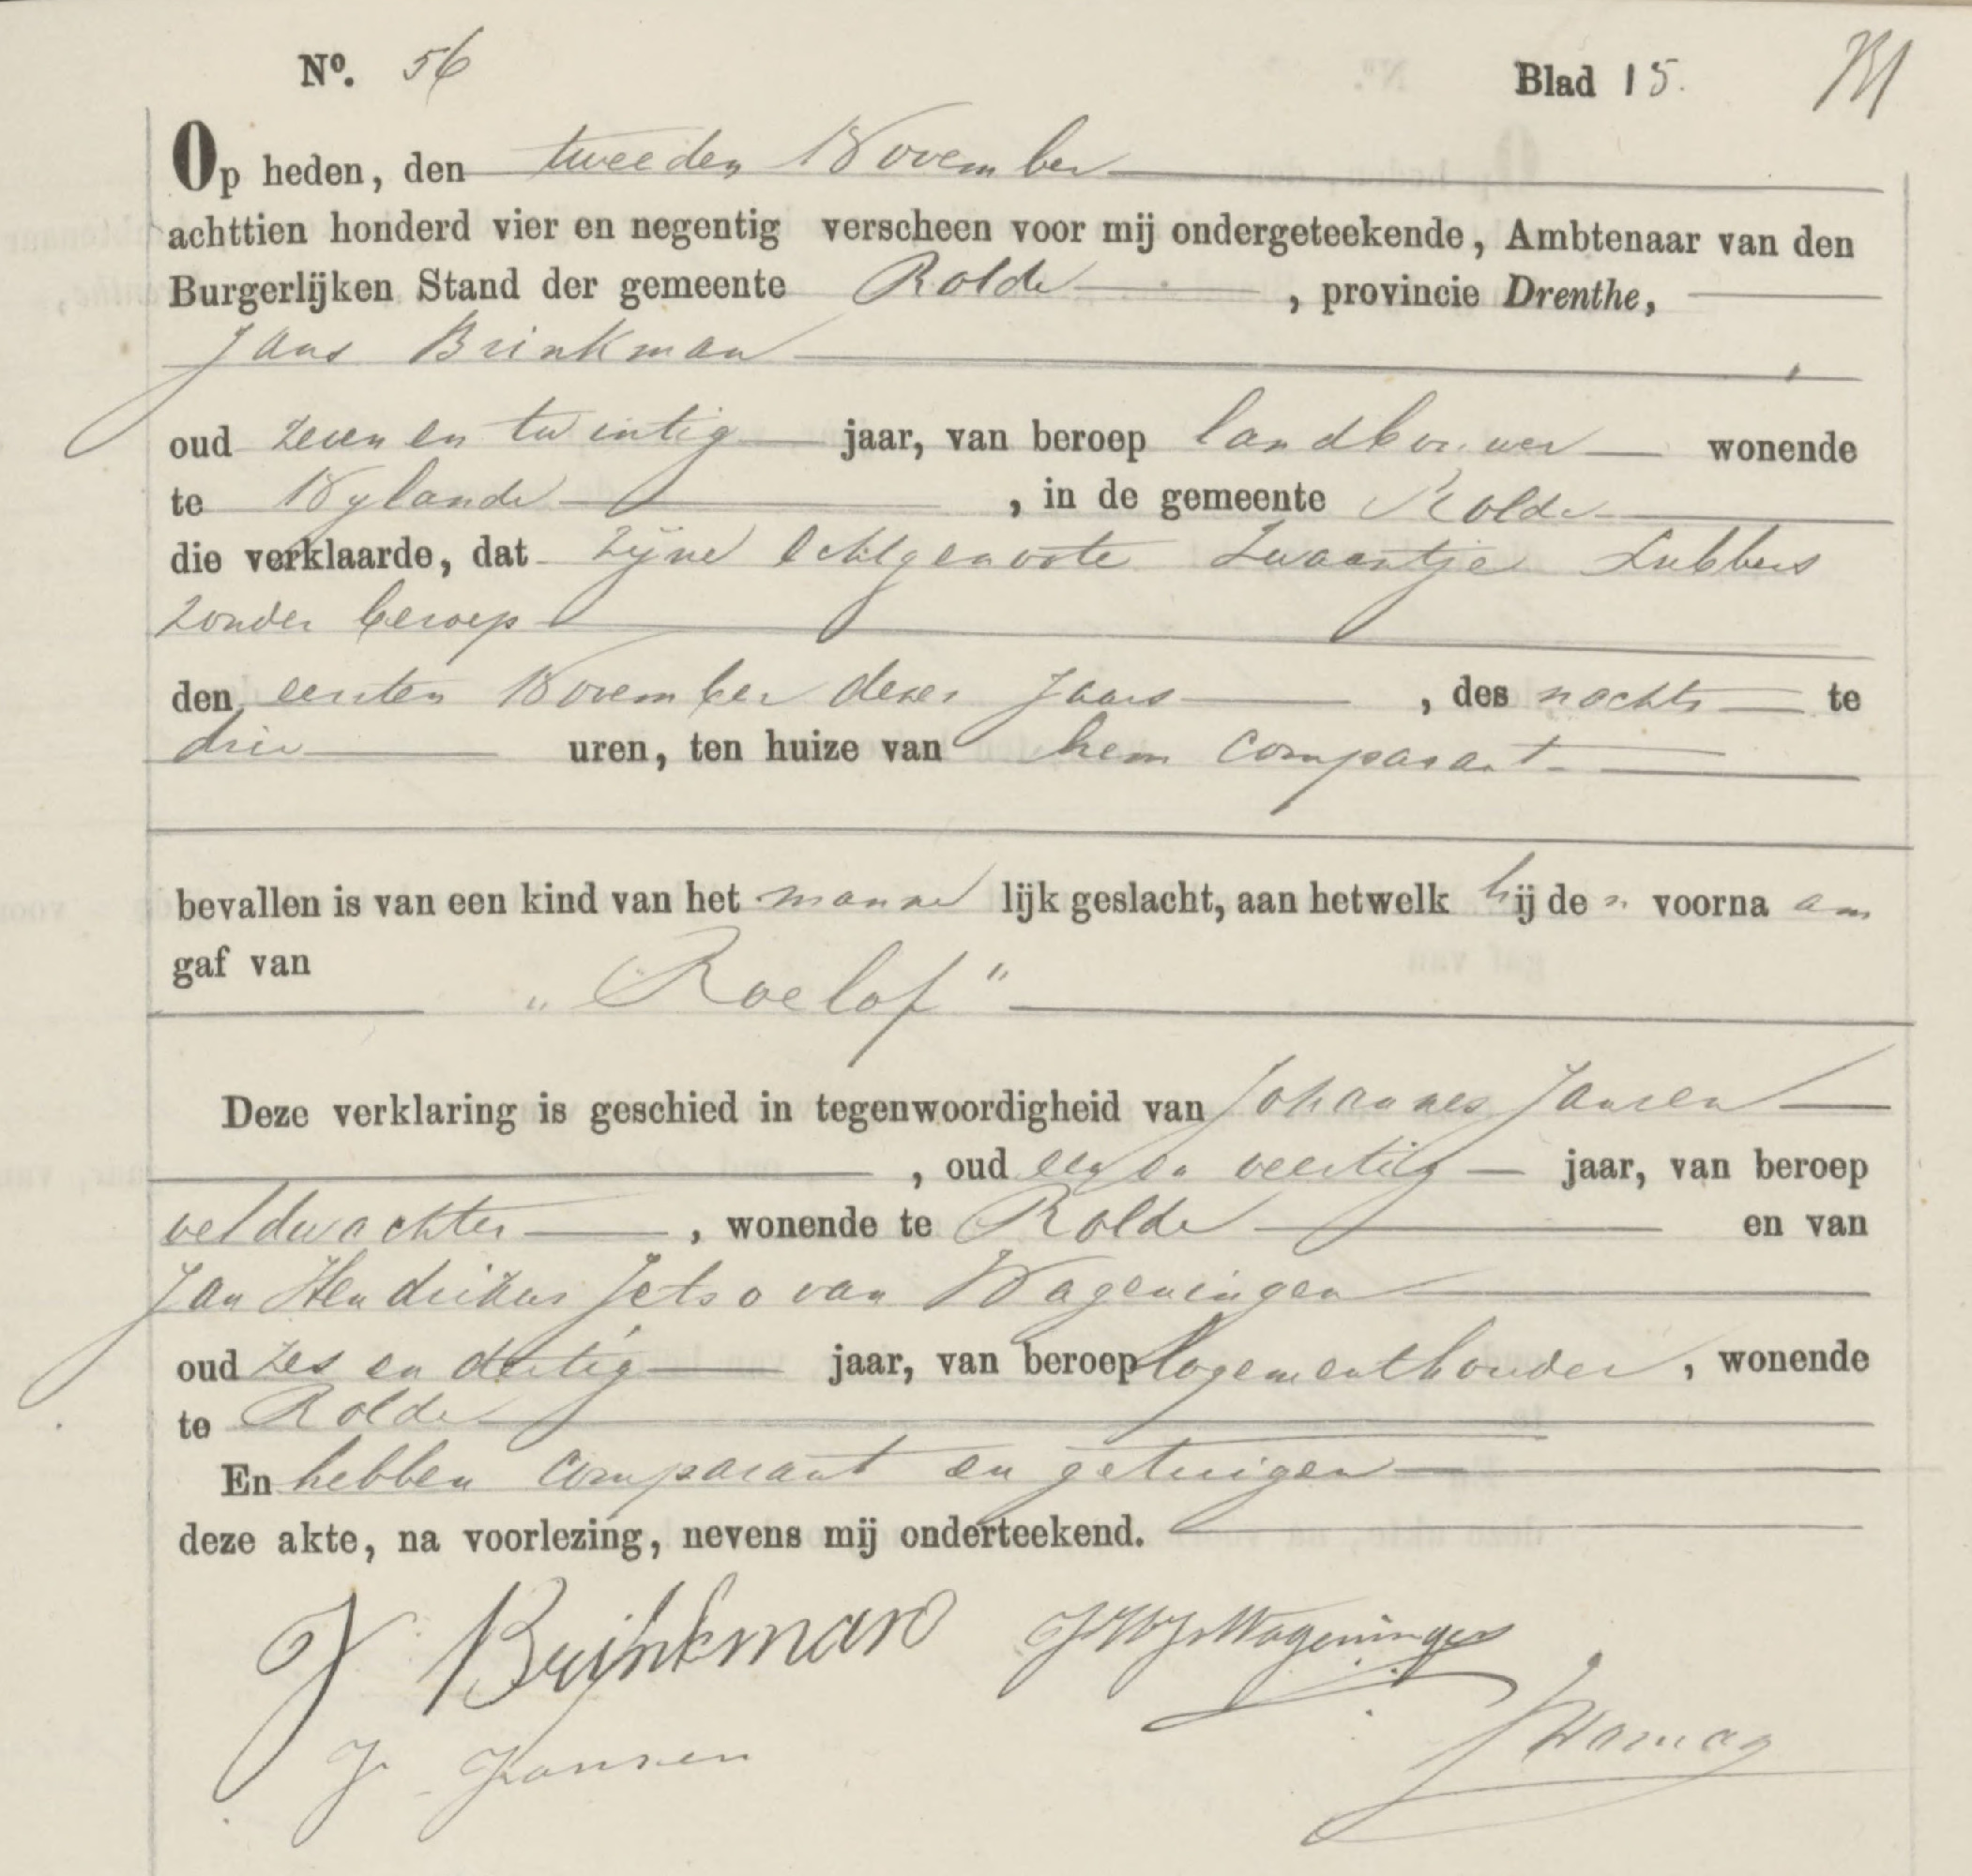 Nº. 56 Blad 15.
Op heden, den tweeden November
achttien honderd vier en negentig verscheen voor mij ondergeteekende, Ambtenaar van den
Burgerlijken Stand der gemeente Rolde, provincie Drenthe,
Jans Brinkman,
oud zeven en twintig jaar, van beroep landbouwer wonende
te Nylande, in de gemeente Rolde
die verklaarde, dat zijne echtgenoote Zwaantje Lubbers
zonder beroep
den eersten November dezes Jaars, des nachts te
drie uren, ten huize van hem Comparant
bevallen is van een kind van het manne lijk geslacht, aan hetwelk hij de n voorna am
gaf van
"Roelof"
Deze verklaring is geschied in tegenwoordigheid van Johannes Jansen
, oud een en veertig jaar, van beroep
veldwachter, wonende te Rolde en van
Jan Hendrikus Jetso van Wageningen
oud zes en dertig jaar, van beroep logementhouder, wonende
te Rolde
En hebben Comparant en getuigen
deze akte, na voorlezing, nevens mij onderteekend.
J Brinkman JHJvWageningen
J Jansen